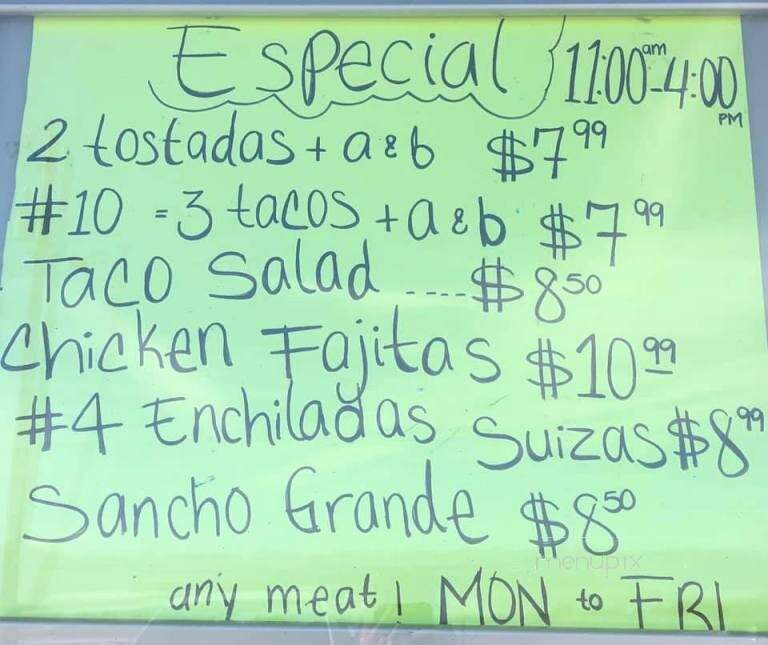 Especial 11:00am-4:00 PM
2 tostadas + a & b $7.99
#10 = 3 tacos + a & b $7.99
Taco Salad ....$8.50
Chicken Fajitas $10.99
#4 Enchiladas Suizas $8.99
Sancho Grande $8.50
menupix
any meat! MON to FRI